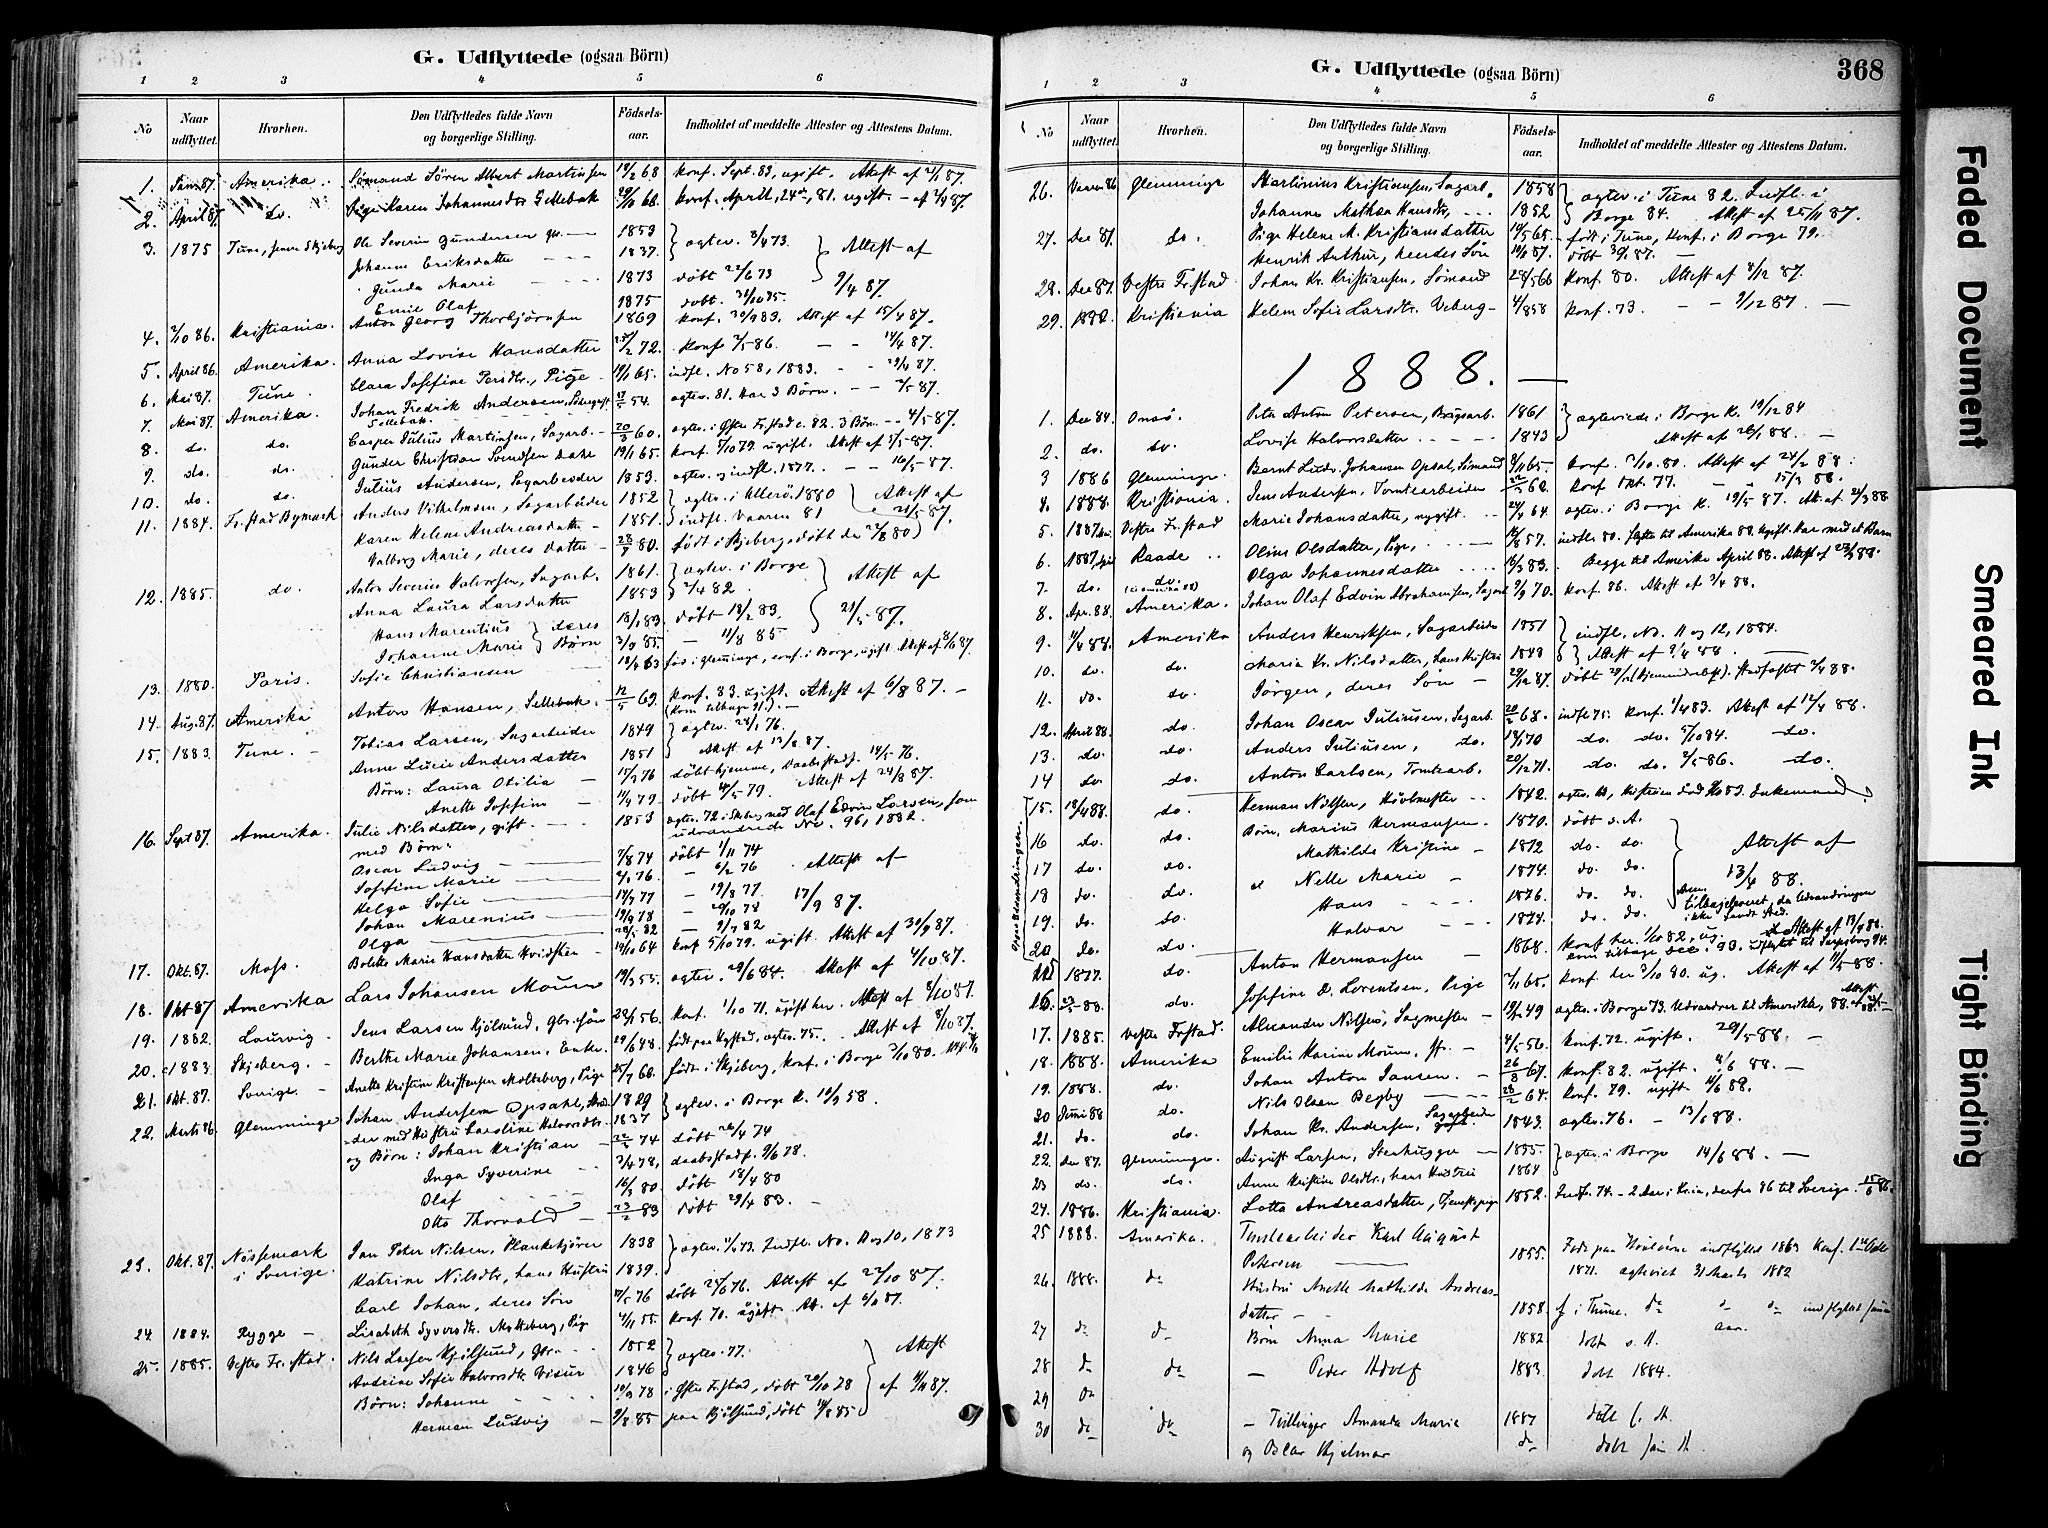 G. Udflyttede (ogsaa Börn)
1 2 3 4 5 6
No Naar udflyttet. Hvorhen. Den Udflyttedes fulde Navn og borgerlige Stilling. Födsels-aar. Indholdet af meddelte Attester og Attestens Datum.
1. Jan 87. Amerika. Sömand Sören Albert Martinsen 19/2 68 konf. Sept. 83, ugift. Attest af 4/1 87.
2. April 87. do. Pige Karen Johannesdtr Sellebak 29/11 66. konf. April, 24de, 81. ugift.
3. 1875 Tune, Ole Severin Gundersen 1853 ægtev. 8/4 73. Attest af
Johanne Eriksdatter 1837.
Gunda Marie 1873 döbt 22/6 73 9/4 87.
Emil Olaf 1875 döbt. 31/10 75.
4. 2/10 86. Kristiania. Anton Georg Thorbjörnsen 1869 konf. 30/9 83. Attest af 15/4 87.
5. April 86. Amerika. Anna Lovise Hansdatter 25/2 72. konf 2/5 86. 14/4 87.
6. Mai 87. Tune. Clara Josefine Persdtr., Pige 19/1 65. indfl. No 58, 1883. 29/4 87.
7. Mai 87. Amerika. Johan Fredrik Andersen, 17/5 54. ægtev. 81. Har 3 Börn. 3/5 87.
Sellebak.
8. do. do. Casper Julius Martinsen, Sagarb. 20/3 60. ægtev. i Östre Frstad c. 82. 3 Börn 4/5 87.
9. do. do. Gunder Christian Svendsen 19/1 65. konf. 5/10 79 ugift. Attest af 5/5 87.
10. do. do. Julius Andersen, Sagarbeider 1853. ægtev. og indfl. 1877. 16/5 87.
11. 1884. Frstad Bymark Anders Vilhelmsen, Sagarbeider 1852 ægtev. i Ullerö. 1880 Attest af
Karen Helene Andreasdatter 1851. indfl. Vaaren 81 21/5 87.
Valborg Marie, deres datter 28/7 80. födt i Skjeberg, döbt der 22/8 80
12. 1885. do. Anton Severin Halvorsen, Sagarb. 1861. ægtev. i Borge Attest af
Anna Laura Larsdatter 1853 2/4 82 21/5 87.
Hans Marentius deres 18/1 83 döbt 18/2 83.
Johanne Marie Börn 3/7 85. 11/8 85.
13. 1880. Paris. Sofie Christiansen 18/4 63 föd i Glemminge, conf. i Borge, ugift. Attest af 8/6 87.
14. Aug. 87. Amerika Anton Hansen, Sellebak. 12/5 69. konf. 83. ugift. Attest af 6/8 87.
(Kom tilbage 91.)
15. 1883. Tune. Tobias Larsen, Sagarbeider 1849 ægtev. 28/1 76.
Anne Lucie Andersdatter 1851 Attest af 13/8 87.
Börn: Laura Otilia 17/2 76 döbt hjemme, Daabsstadf. 14/5 76.
Anette Josefine 11/4 79. döbt 4/5 79. Attest af 24/8 87.
16. Sept 87. Amerika. Julie Nilsdatter, gift. 1853 ægtev. 72 i Skeberg med Olaf Edvin Larsen, som
med Börn: udvandrede No. 96, 1882.
Oscar Ludvig 7/8 74 döbt 1/11 74
Josefine Marie 76. 6/2 76 Attest af
Helga Sofie 14/7 77 19/8 77 17/9 87.
Johan Marenius 19/9 78 20/10 78
Olga 28/5 82 9/7 82
17. Okt. 87. Moss. Bolette Marie Hansdatter Kvidsten 19/10 64 konf 5/10 79. ugift. Attest af 30/9 87.
18. Okt 87. Amerika Lars Johansen Moum 19/3 55. ægtev. 29/6 84. Attest af 4/10 87.
19. 1882. Laurvig. Jens Larsen Kjölsund, 28/1 56. konf. 1/10 71. ugift her. Attest af 8/10 87.
20. c 1883. Skjeberg. Berthe Marie Johansen, Enke. 29/6 48. födt paa Kystad, ægtev. 75. Attest af 8/10 87.
21. Okt. 87. Sverige. Anette Kristine Kristensen Molteberg, Pige 25/7 68. födt i Skjeberg, konf. i Borge 3/10 80.
22. Marts 86. Glemminge Johan Andersen Opsahl, 1829 ægtev. i Borge K. 10/9 58.
med Hustru Caroline Halvorsdtr. 1837
og Börn: Johan Kristian 22/2 74 döbt 26/4 74
Inga Syverine 3/4 78, daabsstadf. 9/6 78.
Olaf 16/3 80. döbt 18/4 80
Otto Thorvald 23/2 83 döbt 29/4 83.
23. Okt. 87. Nössemark Jan Peter Nilsen, Plankekjörer 1838 ægtev. 11/4 73. Indfl. No. 9 og 10, 1873
i Sverige. Katrine Nilsdtr, hans Hustru 1839.
Carl Johan, deres Sön 7/5 76 döbt 28/6 76. Attest af 22/10 87.
24. 1884. Rygge Lisabeth Syversdtr. Molteberg, Pige 4/11 55 konf. 70. ugift. Att. af 6/11 87.
25. 1885. Vestre Fr.stad. Nils Larsen Kjölsund, 1852 ægtev. 77. Attest
Andrine Sofie Halvorsdtr Visur 1846
Börn: Johanne 19/9 78 i Östre Frstad, döbt 20/10 78 af 11/11 87.
Herman Ludvig 9/8 85 paa Kjölsund, döbt 85
G. Udflyttede (ogsaa Börn) 368
1 2 3 4 5 6
No Naar udflyttet. Hvorhen. Den Udflyttedes fulde Navn og borgerlige Stilling. Födsels-aar. Indholdet af meddelte Attester og Attestens Datum.
26. Vaaren 86 Glemminge Martinius Kristiansen, Sagarb. 1858 ægtev. i Tune 82. Indfl. i
Johanne Mathea Hansdtr, 1852 Borge 84. Attest af 25/11 87.
27. Dec 87. do. Pige Helene M. Kristiansdatter 19/5 65. födt i Tune, Konf. i Borge 79.
Henrik Anthur, hendes Sön 19/1 87. döbt 87.
28. Dec 87. Vestre Fr.stad Johan Kr. Kristiansen, Sömand 28/5 66 konf. 80. Attest af 4/12 87.
29. Kristiania Helene Sofie Larsdtr. Veberg 4/8 58 konf. 73. 9/12 87.
1888.
1. Dec 84. Onsö. Peter Anton Petersen, 1861 ægteviede i Borge K. 19/12 84
2. do. do. Lovise Halvorsdatter 1843 Attest af 26/1 88.
3 1886 Glemminge. Bernt Ludv. Johansen Opsal, Sömand 8/11 65. konf. 3/10. 80. Attest af 24/2 88.
4. 1888. Kristiania. Jens Andersen, Tomtearbeider 60. konf Okt. 77. 15/3 88.
5. 1887 Vestre Fr.stad Marie Johansdatter, ugift. 24/4 64. ægtev. i Borge K. 19/5 87. Att. af 21/3 88
6. 1887 Raade Oline Olsdatter, Pige, 16/8 57. indfl. 80. Flyttet til Amerika 88. ugift. Har med et Barn
7. do. do. Olga Johannesdatter 16/3 83. Begge til Amerika April 88. Attest af 23/3 88.
(Amerika 88)
8. Apr. 88. Amerika. Johan Olaf Edvin Abrahamsen, Sagarb 2/9 70. konf. 86. Attest af 3/4 88.
9. 11/4 88. Amerika Anders Henriksen, Sagarbeider 1851 indfl. No. 11 og 12, 1884.
10. do. do. Maria Kr. Nilsdatter, hans Hustru 1848 Attest af 9/4 88
11. do. do. Jörgen, deres Sön 29/12 87. döbt (hjemmedöbt). Stadfæstet 2/4 88.
12. April 88. do. Johan Oscar Juliusen, Sagarb. 20/2 68. indfl. 75. konf. 1/4 83. Attest af 12/4 88.
13. do. do. Anders Juliusen, do. 18/1 70 do. do. 5/10 84. do.
14 do do. Anton Carlsen, Tomtearb. 20/12 71. do. do. 2/5 86. do.
15. 13/4 88. do. Herman Nilsen, Hövlmester 1842. ægtev. Hustruen död 83. Enkemand.
16 do. do. Börn: Marius Hermansen. 1870. döbt s. A.
17 do. do. Mathilde Kristine 1872 do. do. Attest af
18 do. do. Nelle Marie 1874. do. do. 13/4 88.
19. do. do. Hans 1876. do. do. Anm. tilbageleveret, da Udvandringen
20 do. do. Halvor 1877. do. do. ikke fandt Sted.
Opgiv Udvandringen.
do. Anton Hermansen 1868. konf. her. 1/10 82, ug. Attest af 13/4 88.
kom tilbage Dec. 93. udflyttet til Sarpsborg 94.
15 1877. do. Josefine D. Lorentsen, Pige 7/11 65. konf. her 3/10 80. ug. Attest af 11/5 88.
16. 23/5 88. do. Alexander Nilsen, Sagmester 19/2 49 ægtev. i Borge 73. Udvandrer til Amerika, 88. Attest
17. 1885. Vestre Frstad. Emilie Karine Moum, 4/5 56. konf. 72. ugift. 29/5 88.
18. 1888. Amerika Johan Anton Jansen. 26/8 67. konf. 82. ugift. 4/6 88.
19. 1888. do. Nils Olsen Begby 23/2 64. konf. 79. ugift 4/6 88.
20 Juni 88 do. Johan Kr. Andersen, Sagarbeider gift. 1843. ægtev. 76. 13/6 88.
21. do. do. August Larsen, Stenhugger 1855. ægtev. i Borge 14/6 88.
22. Dec 87. Glemminge Anne Kristine Olsdtr., hans Hustru 1864
23 do. do.
24. 1886. Kristiania. Lotta Andreasdatter, Tjenestepige 1852. Indfl. 74. 2 Aar i Kria, derfra 86 til Sverige. 15/6 88.
25 1888. Amerika. Tomtearbeider Karl August
Petersen 1855. Föd paa indflyttet 1863 konf. 1ste Octb
1871. ægteviet 31 Marts 1882
26. 1888. do Hustru Anette Mathilde Andreas-
datter 1858. f. i Thune. do do do indflyttet samme
Aar.
27 do do Börn Anna Marie 1882 döbt s. A.
28 do do Peder Adolf 1883 döbt 1884.
29 do
30 do do Tvillinger Amanda Marie 1887 döbt s. A.
og Oscar Hjelmar do döbt sam A.
Faded Document
Smeared Ink
Tight Binding